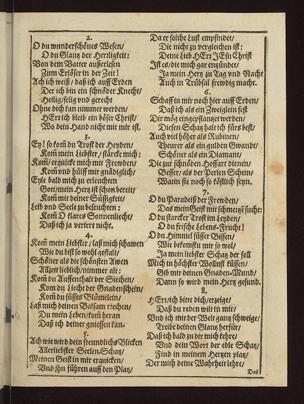 2.
O du wunderschönes Wesen/
O du Glantz der Herrligkeit:
Von dem Vatter außerlesen
Zum Erlöser in der Zeit!
Ach ich weiß/ daß ich auff Erden
Der ich bin ein schnöder Knecht/
Heilig/selig und gerecht
Ohne dich kan nimmer werden/
HErr ich bleib ein böser Christ/
Wo dein Hand nicht mit mir ist.
3.
Ey! so kom du Trost der Heyden/
Kom mein Liebster/ stärcke mich:
Kom/ erquicke mich mit Frewden/
Kom und hülff mir gnädiglich/
Eyle bald mich zu erleuchten
Gott/mein Hertz ist schon bereit/
Kom mit deiner Süssigkeit/
Leib und Seele zu befeuchten:
Kom O klares Sonnenliecht/
Daß ich ja verirre nicht.
4.
Kom mein Liebster/ laß mich schawen
Wie du bist so wohl gestalt/
Schöner als die schönsten Awen
Allzeit lieblich/nimmer alt:
Kom du Auffenthalt der Siechen/
Kom du Liecht der Gnadenschein/
Kom du süsses Blümelein/
Laß mich deinen Balsam riechen/
Du mein Leben/kom heran
Daß ich deiner geniessen kan.
5.
Ach wie wird dein freundlichs Blicken
Allerliebster Seelen-Schatz/
Meinen Geist in mir erquicken/
Und jhn führen auff den Platz/
Da er solche Lust empfindet/
Die nicht zu vergleichen ist:
Deine Lieb HErr JEsu Christ
Ist es/ die mich gar entzündet/
Ja mein Hertz zu Tag und Nacht
Auch in Trübsal frewdig macht.
6.
Schaff in mir noch hier auff Erden/
Daß ich als ein Zweiglein fest
Dir mög eingepflantzet werden/
Diesen Schatz halt ich fürs best/
Auch viel höher als Rubinen/
Theurer als ein gulden Gewand/
Schöner als ein Diamant/
Die zur schnöden Hoffart dienen/
Besser/ als der Perlen Schein/
Wann sie noch so köstlich seyn.
7.
O du Paradeiß der Frewden/
Das mein Geist mit schmertz sucht:
O du starcker Trost im Leyden/
O du frische Lebens-Frucht!
O du Himmel süsser Bissen/
Wie bekomstu mir so wol/
Ja mein liebster Schatz der soll
Mich in höchster Wollust küssen:
Gib mir deinen Gnaden-Mund/
Dann so wird mein Hertz gesund.
8.
HErr/ich bitte dich/erzeige/
Daß du reden wilt in mir/
Und ich mir der Welt gantz schweige:
Treibe deinen Glantz herfür/
Daß ich bald zu dir mich kehre/
Und dein Wort der edle Schatz/
Find in meinem Hertzen platz/
Der mich deine Wahrheit lehre/
Das